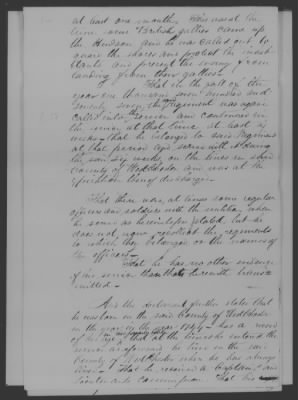 at least one month. That about the
time some British gallies came up
the Hudson and he was called out to
guard the shores and protect the inhab-
itants and prevent the enemy from
landing from their gallies.
That in the fall of the
year one thousand seven hundred and
seventy seven the Regiment was again
called into service and continued in
the service at that time at least six
weeks. That he belonged to said Regiment
at that period and served with it during
the said six weeks, on the lines in said
County of West Chester and was at the
expiration thereof discharged.
That there were at times some regular
officers and soldiers with the militia when
he served as herein before stated, but he
does not now recollect the regiments
to which they belonged, or the names of
the officers.
That he has no other evidence
of his service than that herewith trans-
mitted.
And the declarant further states that
he was born in the said County of West Chester
in the year
has a record
of his age that at the time he entered the
service as aforesaid he lived in the said
County of West Chester where he has always
lived. That he received a
That his